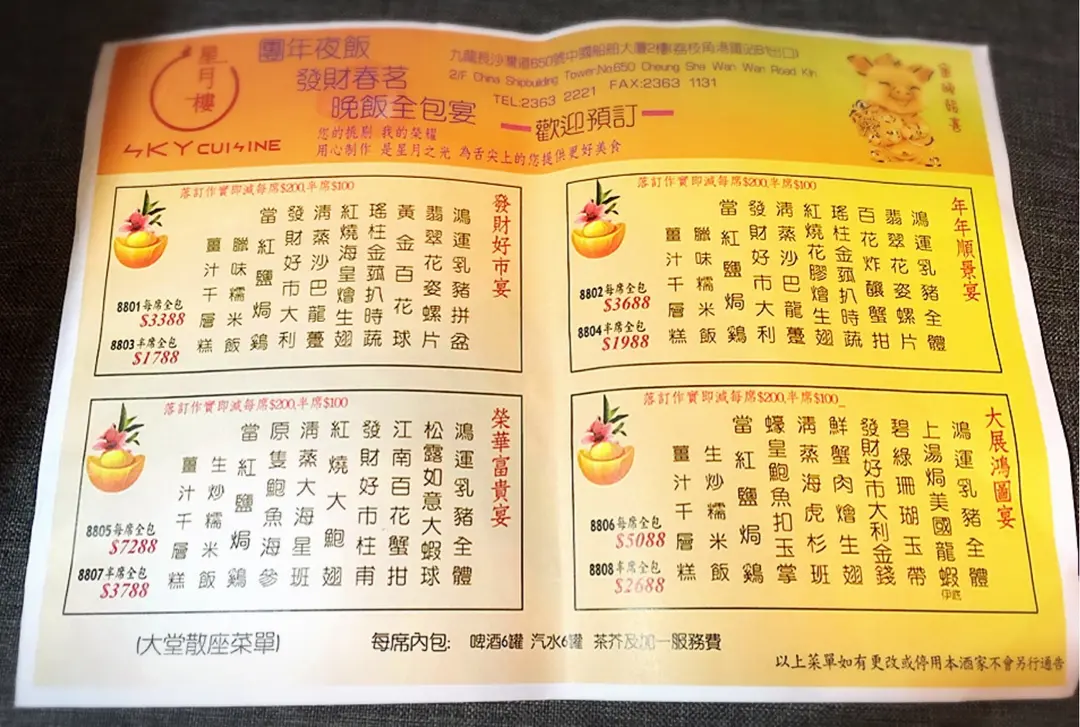 星月樓
SKY CUISINE
團年夜飯
發財春茗
晚飯全包宴
您的挑剔 我的榮耀
用心制作 是星月之光 為舌尖上的您提供更好美食
九龍長沙灣道650號中國船舶大廈2樓(荔枝角港鐵站B1出口)
2/F China Shipbuilding Tower.No.650 Cheung Sha Wan Wan Road Kln
TEL:2363 2221 FAX:2363 1131
歡迎預訂
落訂作實即減每席$200,半席$100
發財好市宴
鴻運乳豬拼盆
翡翠花姿螺片
黃金百花球
瑤柱金菰扒時蔬
紅燒海皇燴生翅
清蒸沙巴龍躉
發財好市大利
當紅鹽焗鷄
臘味糯米飯
薑汁千層糕
8801每席全包
$3388
8803半席全包
$1788
落訂作實即減每席$200,半席$100
年年順景宴
鴻運乳豬全體
翡翠花姿螺片
百花炸釀蟹拑
瑤柱金菰扒時蔬
紅燒花膠燴生翅
清蒸沙巴龍躉
發財好市大利
當紅鹽焗鷄
臘味糯米飯
薑汁千層糕
8802每席全包
$3688
8804半席全包
$1988
落訂作實即減每席$200,半席$100
榮華富貴宴
鴻運乳豬全體
松露如意大蝦球
江南百花蟹拑
發財好市柱甫
紅燒大鮑翅
清蒸大海星班
原隻鮑魚海參
當紅鹽焗鷄
生炒糯米飯
薑汁千層糕
8805每席全包
$7288
8807半席全包
$3788
落訂作實即減每席$200,半席$100
大展鴻圖宴
鴻運乳豬全體
上湯焗美國龍蝦伊底
碧綠珊瑚玉帶
發財好市大利金錢
鮮蟹肉燴生翅
清蒸海虎杉班
蠔皇鮑魚扣玉掌
當紅鹽焗鷄
生炒糯米飯
薑汁千層糕
8806每席全包
$5088
8808半席全包
$2688
(大堂散座菜單)
每席內包: 啤酒6罐 汽水6罐 茶芥及加一服務費
以上菜單如有更改或停用本酒家不會另行通告